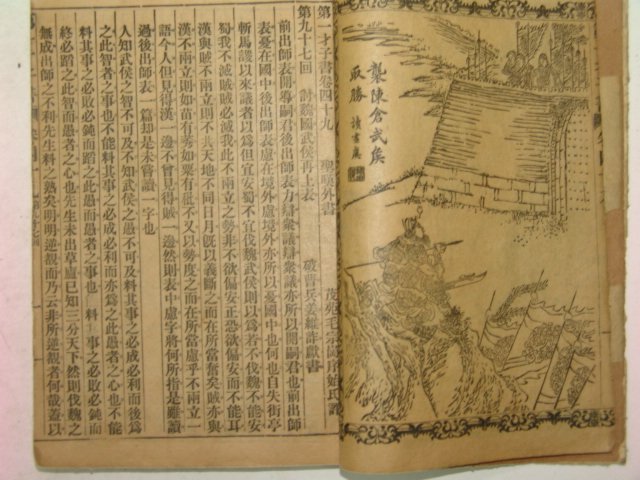 襲陳倉武侯
取勝
第一才子書卷四十九 聖歎外書 茂苑毛宗崗序始氏評
第九十七回 討魏國武侯再上表 破曹兵姜維詐獻書
前出師表開導嗣君後出師表力辯衆議辯衆議亦所以開嗣君也前出師
表憂在國中後出師表慮在境外慮境外亦所以憂國中也何也自失街亭
斬馬謖以來議者以爲但宜安蜀不宜伐魏武侯則以爲若不伐魏不能安
蜀我不滅賊賊必滅我此不兩立之勢非不欲偏安正恐欲偏安而不能耳
漢與賊不兩立則不共天地不同日月既以義斷之而在所當奮矣賊亦與
漢不兩立則如苗有秀如粟有秕不又以勢度之而在所當慮乎不兩立一
語今人但見得漢一邊不曾見得賊一邊然則表中慮字將何所指是雖讀
過後出師表一篇却是未嘗讀一字也
人知武侯之智不可及不知武侯之愚不可及料其事之必成必利而後爲
之此智者之事也不能料其事之必成必利而亦爲之此愚者之心也不能
料其事之必敗必鈍而蹈之此愚而愚者之事也料其事之必敗必鈍而
終必蹈之此智而愚者之心也先生未出草廬已知三分天下然則伐魏之
無成出師之不利先生料之熟矣明明逆覩而乃云非所逆覩何哉蓋以